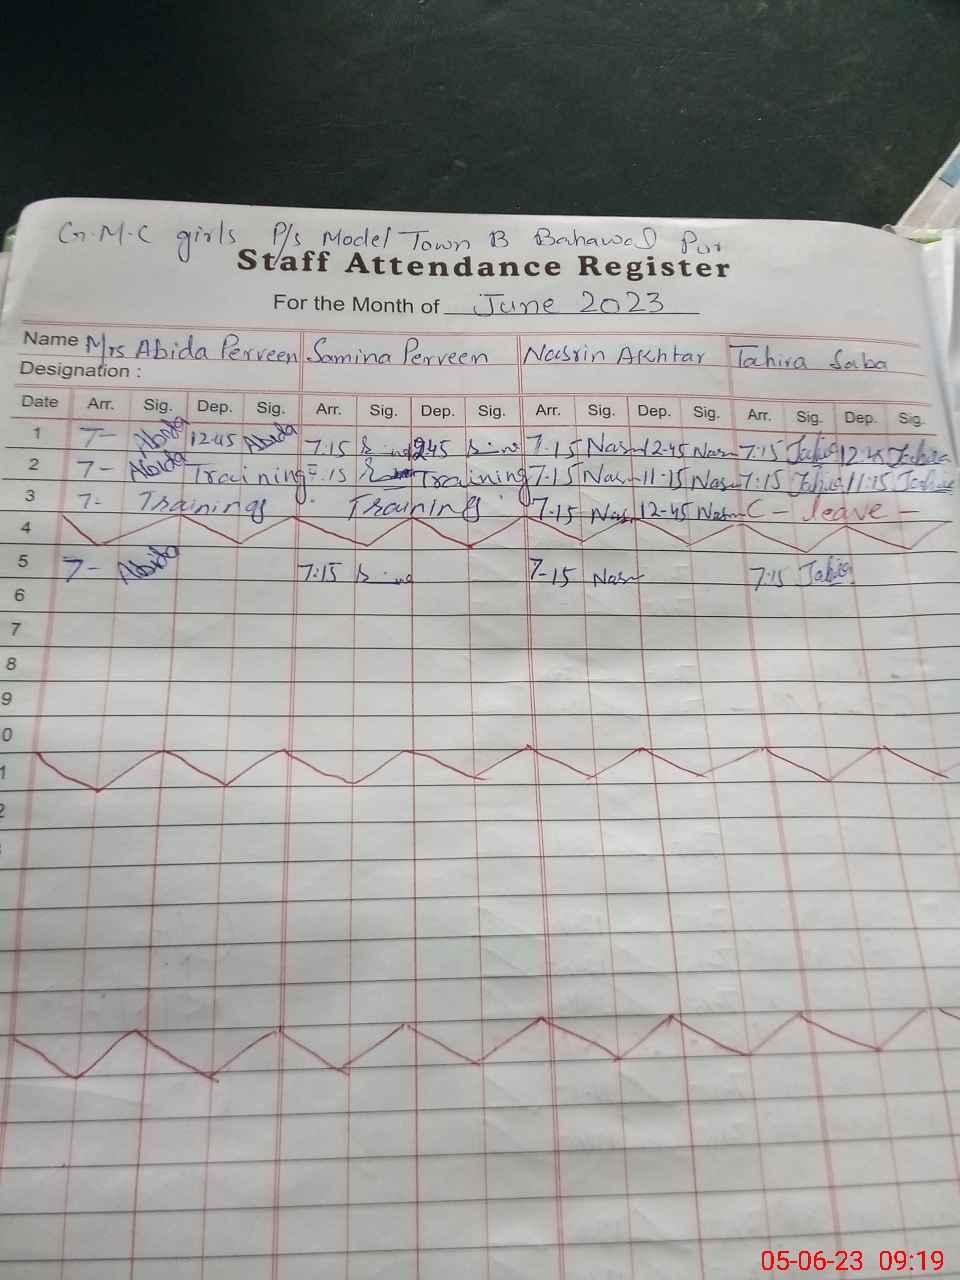 G.M.C girls P/s Model Town B Bahawal Pur
Staff Attendance Register
For the Month of June 2023
Name Mrs Abida Perveen Samina Perveen Nasrin Akhtar Tahira Saba
Designation :
Date Arr. Sig. Dep. Sig. Arr. Sig. Dep. Sig. Arr. Sig. Dep. Sig. Arr. Sig. Dep. Sig.
1 7- Abida 12-45 Abida 7.15 7-15 Nasr 12-45 Nasr 7:15 Tahira 12-45 Tahira
2 7- Abida Training 7.15 Training 7-15 Nasr 11-15 Nasr 7:15 Tahira 11:15 Tahira
3 7- Trainings Training 7-15 Nasr 12-45 Nasr C- leave -
4
5 7- Abida 7:15 7-15 Nasr 7:15 Tahira
6
7
8
9
0
1
2
05-06-23 09:19